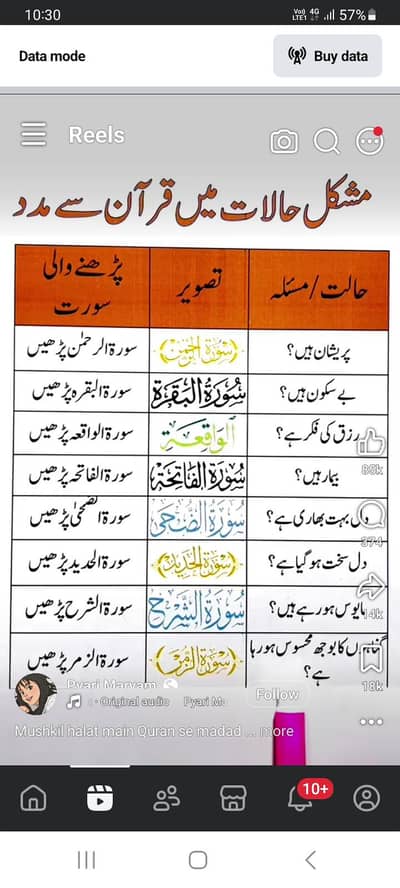 10:30
Vo)) LTE1 4G 57%
Data mode
Buy data
Reels
مشکل حالات میں قرآن سے مدد
حالت/مسئلہ تصویر پڑھنے والی سورت
پریشان ہیں؟ سورۃ الرحمن سورۃ الرحمٰن پڑھیں
بے سکون ہیں؟ سُورَةُ البَقَرَة سورۃ البقرہ پڑھیں
رزق کی فکر ہے؟ الواقعة سورۃ الواقعہ پڑھیں
بیمار ہیں؟ سُورَةُ الفَاتِحَة سورۃ الفاتحہ پڑھیں
85k
دل بہت بھاری ہے؟ سُورَةُ الضُّحَى سورۃ الضحیٰ پڑھیں
374
دل سخت ہو گیا ہے؟ سورة الحديد سورۃ الحدید پڑھیں
مایوس ہو رہے ہیں؟ سُورَةُ الشَّرْح سورۃ الشرح پڑھیں
14k
گناہوں کا بوجھ محسوس ہو رہا ہے؟ سورة الزمر سورۃ الزمر پڑھیں
18k
Pyari Maryam
Original audio Pyari Mc
Follow
Mushkil halat main Quran se madad ... more
10+